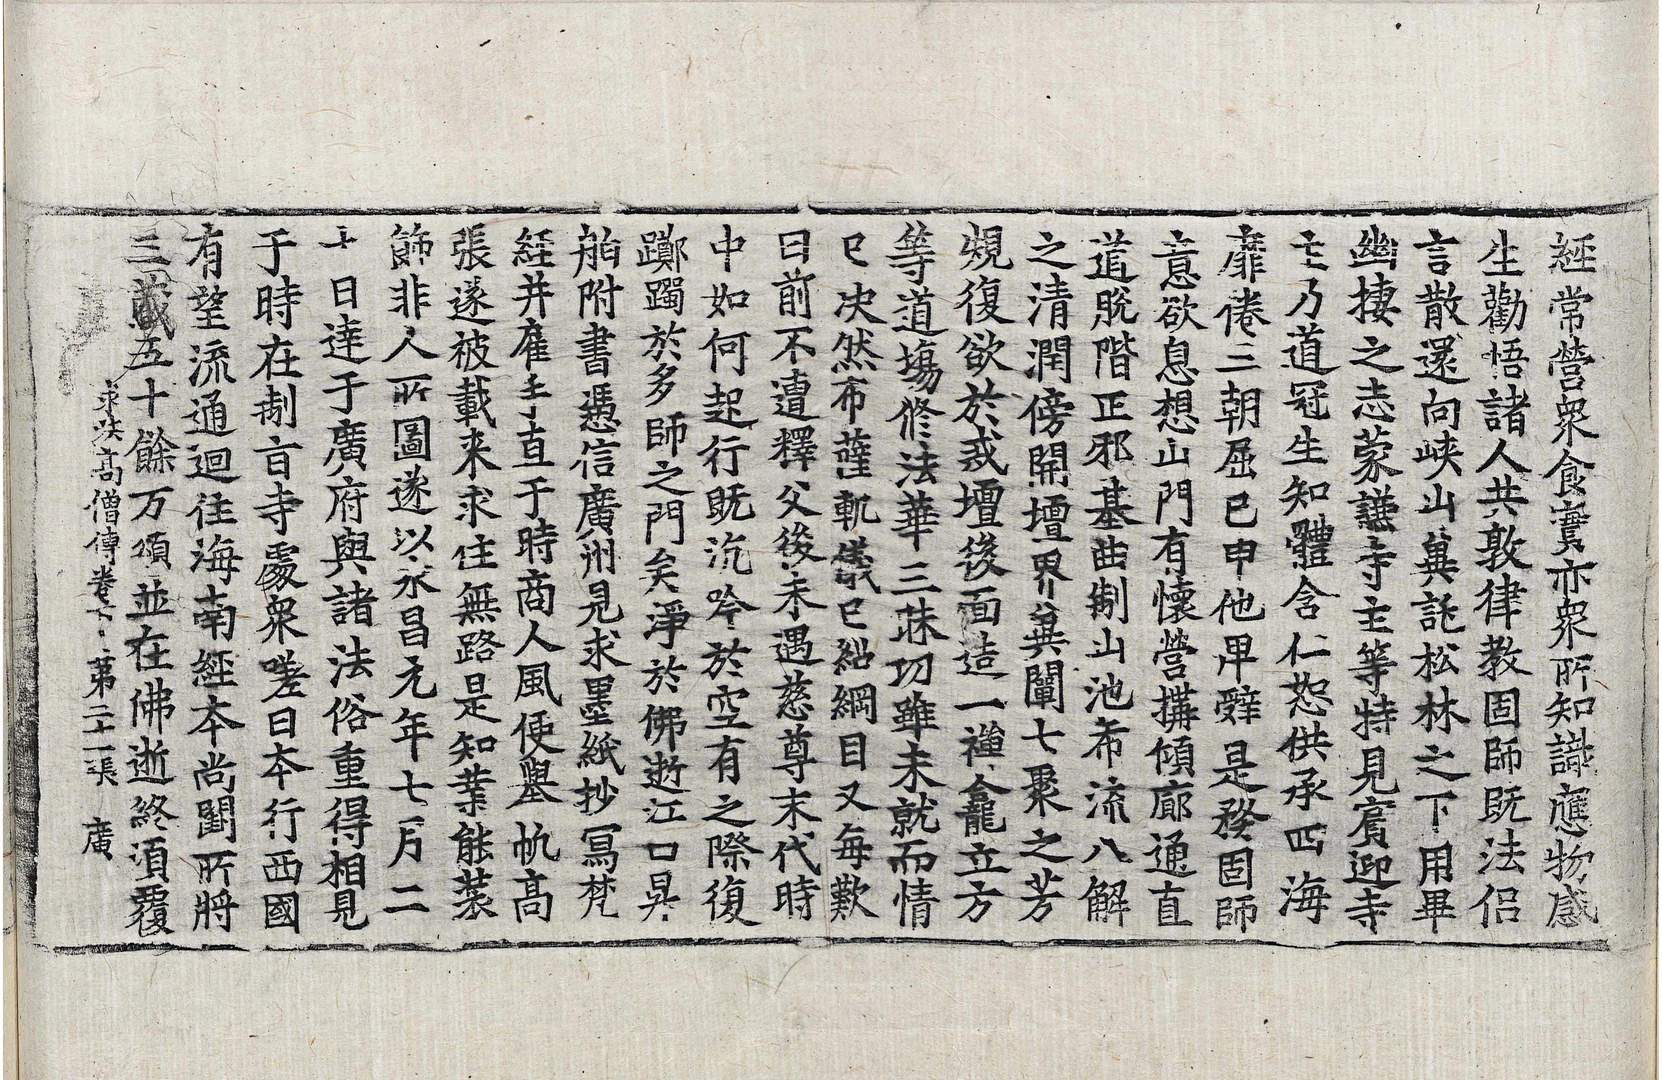 經常營衆食實亦衆所知識應物感
生勸悟諸人共敦律教固師既法侶
言散還向峽山兾託松林之下用畢
幽棲之志蒙謙寺主等特見賓迎寺
主乃道冠生知體含仁恕供承四海
靡倦三朝屈己申他卑辤是務固師
意欲息想山門有懷營搆傾廊通直
道脫階正邪基曲制山池希流八解
之清潤傍開壇界兾闡七聚之芳
規復欲於戒壇後面造一禪龕立方
等道場修法華三昧功雖未就而情
已决然布薩軌儀已紹綱目又每歎
曰前不遭釋父後未遇慈尊末代時
中如何起行既沉吟於空有之際復
躑躅於多師之門矣淨於佛逝江口昇
舶附書憑信廣州見求墨紙抄寫梵
經并雇手直于時商人風便舉帆高
張遂被載來求住無路是知業能裝
飾非人所圖遂以永昌元年七月二
十日達于廣府與諸法俗重得相見
于時在制旨寺處衆嗟曰本行西國
有望流通迴住海南經本尚闕所將
三藏五十餘万頌並在佛逝終須覆
求法高僧傳卷下 第二十一張 廣